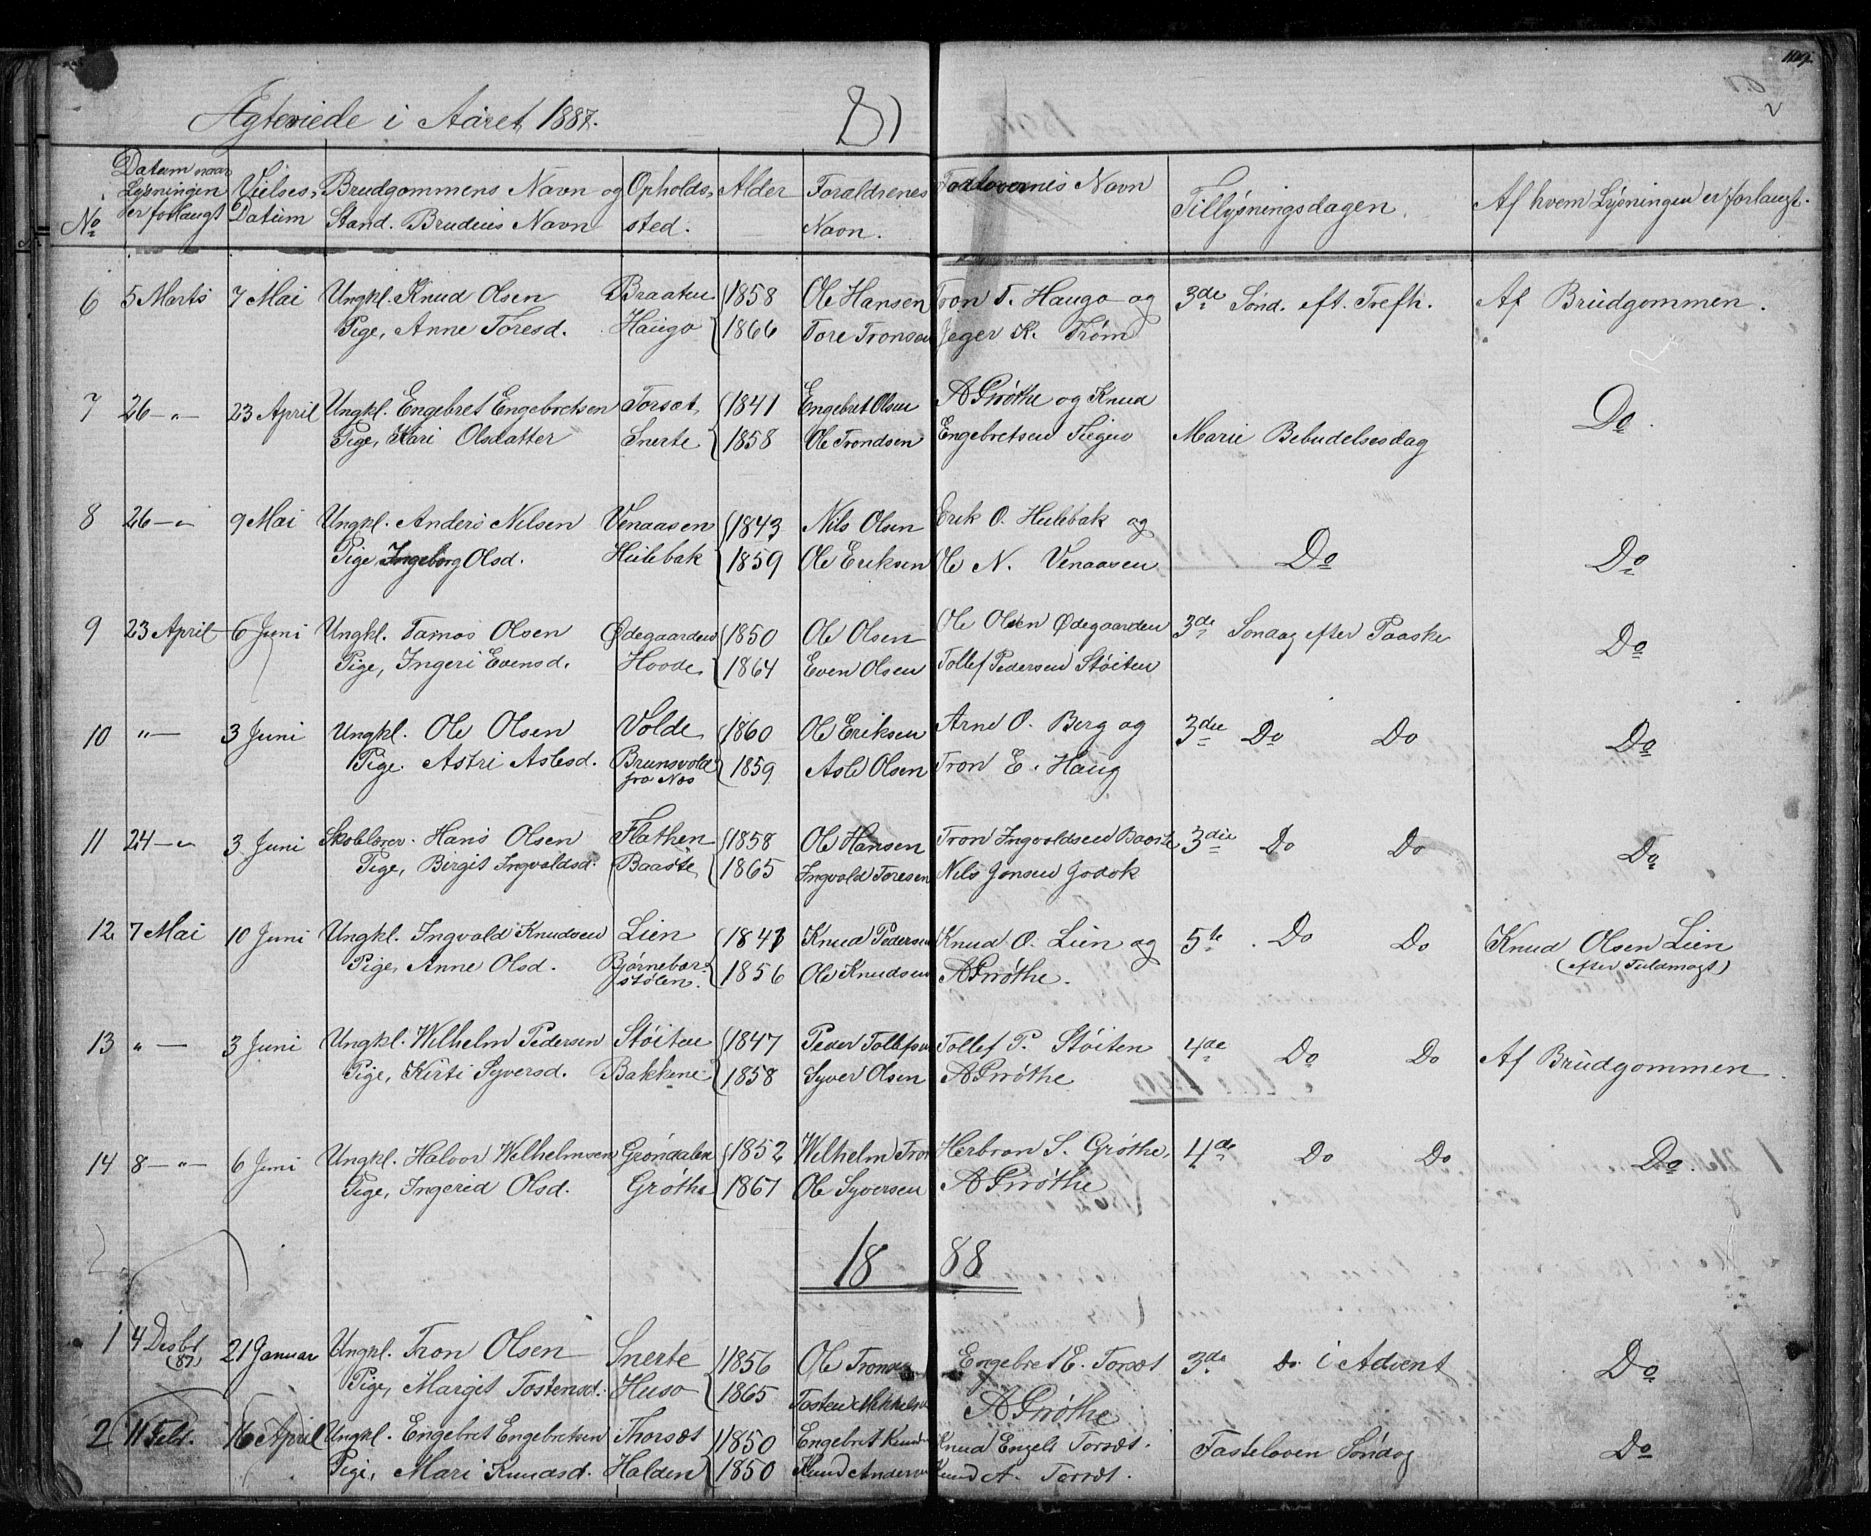 109.
Ægteviede i Aaret 1887.
No
Datum naar Lysningen er forlangt
Vielses, Datum
Brudgommens Navn og Stand. Brudens Navn
Opholds, sted.
Alder
Foraldrenes Navn.
Forlovernes Navn
Tillysningsdagen.
Af hvem Lysningen er forlangt.
6 5 Marts 7 Mai Ungkl. Knud Olsen Braaten 1858 Ole Hansen Tron T. Haugo og 3de Sønd. eft. Trefh. Af Brudgommen.
Pige, Anne Toresd. Haugo 1866 Tore Tronsen Jeger K. Trøm
7 26 - " - 23 April Ungkl. Engebret Engebretsen Torsæt, 1841 Engebret Olsen A Grøthe og Knud Do.
Pige, Kari Olsdatter Snerte. 1858 Ole Trondsen Engebretsen Marie Bebudelsesdag
8 26 - " 9 Mai Ungkl. Anders Nilsen Venaasen 1843 Nils Olsen Erik O. Hulebak og
Pige, Ingeborg Olsd. Hulebak 1859 Ole Eriksen Ole N. Venaasen Do Do
9 23 April 6 Juni Ungkl. Tamos Olsen Ødegaarden 1850 Ole Olsen Ole Olsen Ødegaarden 3de Søndag efter Paaske Do
Pige, Ingeri Evensd. Hovde, 1864 Even Olsen Tollef Pedersen Støiten
10 " - 3 Juni Ungkl. Ole Olsen Volde, 1860 Ole Eriksen Arne O. Berg og 3die Do Do Do
Pige. Astri Aslesd. Brunsvold fra Næs 1859 Asle Olsen Tron E. Haug
11 24 - " 3 Juni Skolelærer. Hans Olsen Flathen 1858 Ole Hansen Tron Ingvaldsen Baaste 3die Do Do Do
Pige, Birgit Ingvaldsd. Baaste, 1865 Ingvald Toresen Nils Jonsen
12 7 Mai 10 Juni Ungkl. Ingvald Knudsen Lien 1847 Knud Pedersen Knud O. Lien og 5te. Do Do Knud Olsen Lien
Pige, Anne Olsd. Bjørnebær-stølen. 1856 Ole Knudsen A Grøthe. (efter Fuldmagt)
13 " - 3 Juni Ungkl. Wilhelm Pedersen Støiten 1847 Peder Tollefsen Tollef P. Støiten 4de Do Do Af Brudgommen.
Pige, Kirti Syversd. Bakkene 1858 Syver Olsen A Grøthe
14 8 - " - 6 Juni Ungkl. Halvor Wilhelmsen Grøndalen 1852 Wilhelm Tron Herbran S. Grøthe, 4de Do Do Do.
Pige, Ingerid Olsd. Grøthe 1867 Ole Syversen A Grøthe
18 88
1 4 Desbr (87) 21 Januar Ungkl. Tron Olsen Snerte 1856 Ole Tronsen Engebret E. Torsæt 3de Do i Advent Do
Pige, Margit Tostensd. Huso 1865 Tosten Mikkelsen A Grøthe
2 11 Febr. 16 April Ungkl. Engebret Engebretsen Thorsæt 1850 Engebret Knud Knud Engebr Torsæt. Fastelaven Søndag Do
Pige, Mari Knudsd. Halden 1850 Knud Andersen Knud A. Torsæt.